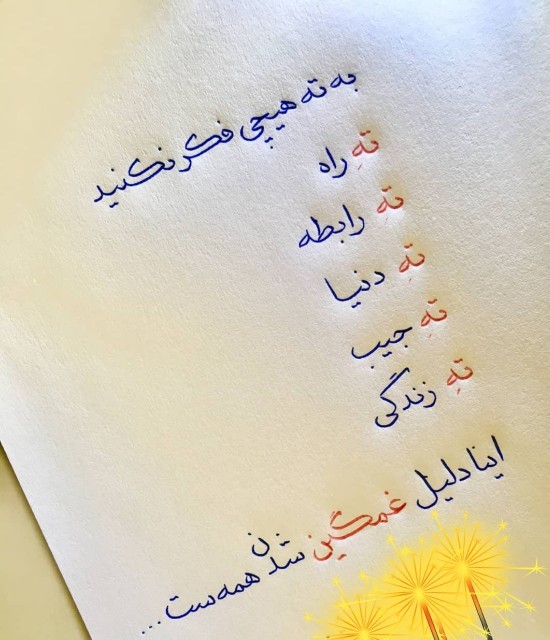 به ته هیچی فکر نکنید
تهِ راه
تهِ رابطه
تهِ دنیا
تهِ جیب
تهِ زندگی
اینا دلیل غمگین شدن همه ست...